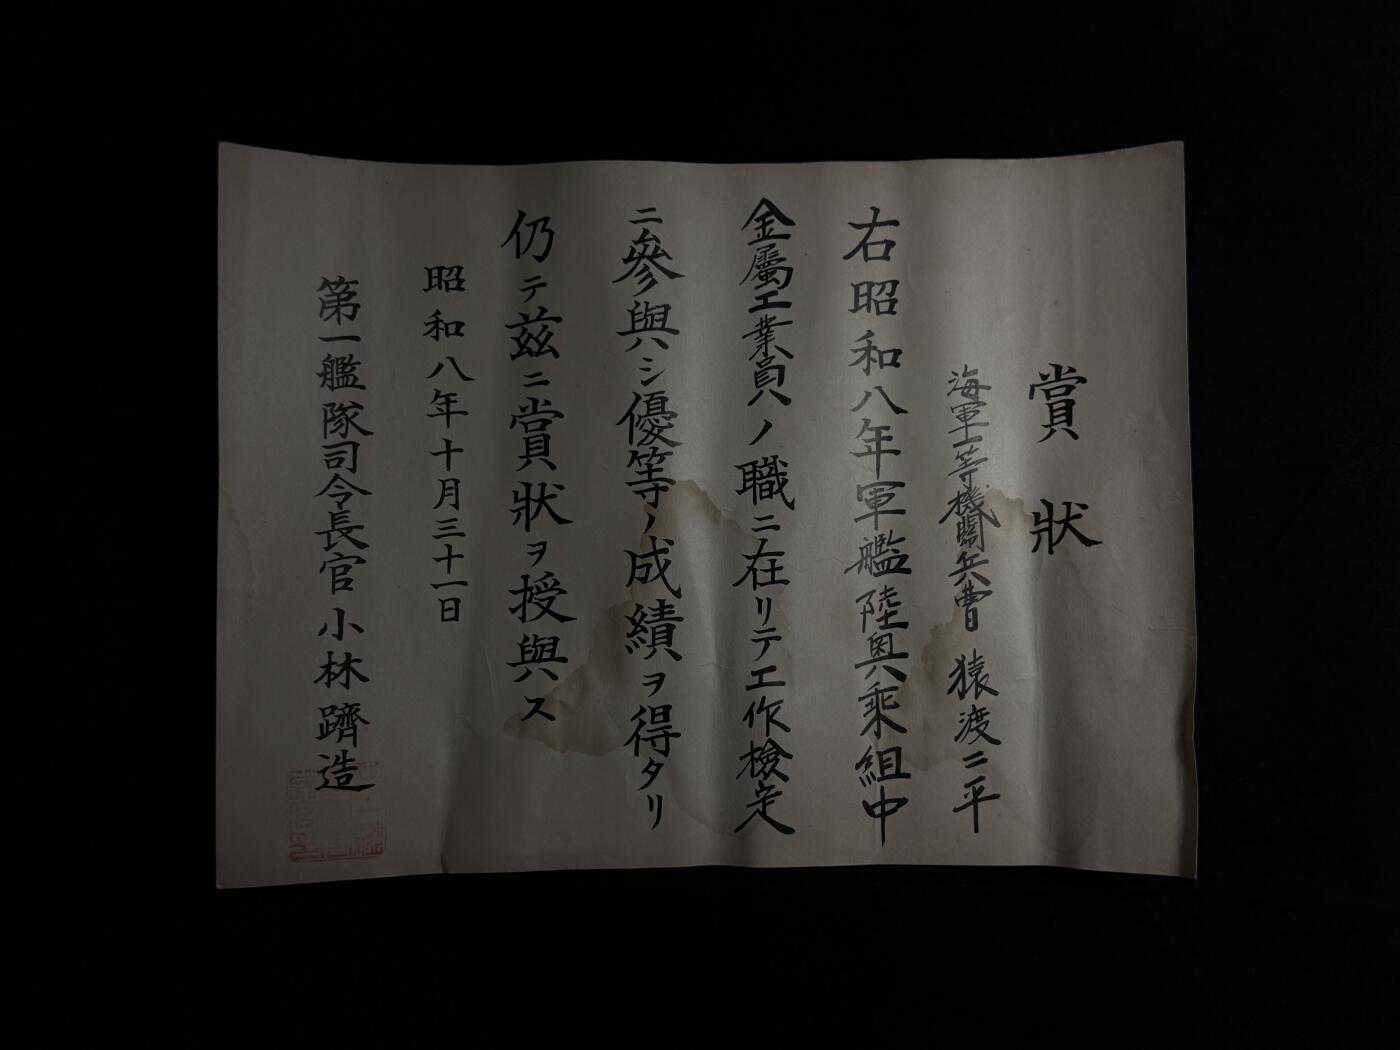 賞狀
海軍一等機關兵曹 猿渡二平
右昭和八年軍艦陸奥乘組中
金屬工業員ノ職ニ在リテ工作檢定
ニ參與シ優等ノ成績ヲ得タリ
仍テ茲ニ賞狀ヲ授與ス
昭和八年十月三十一日
第一艦隊司令長官小林躋造